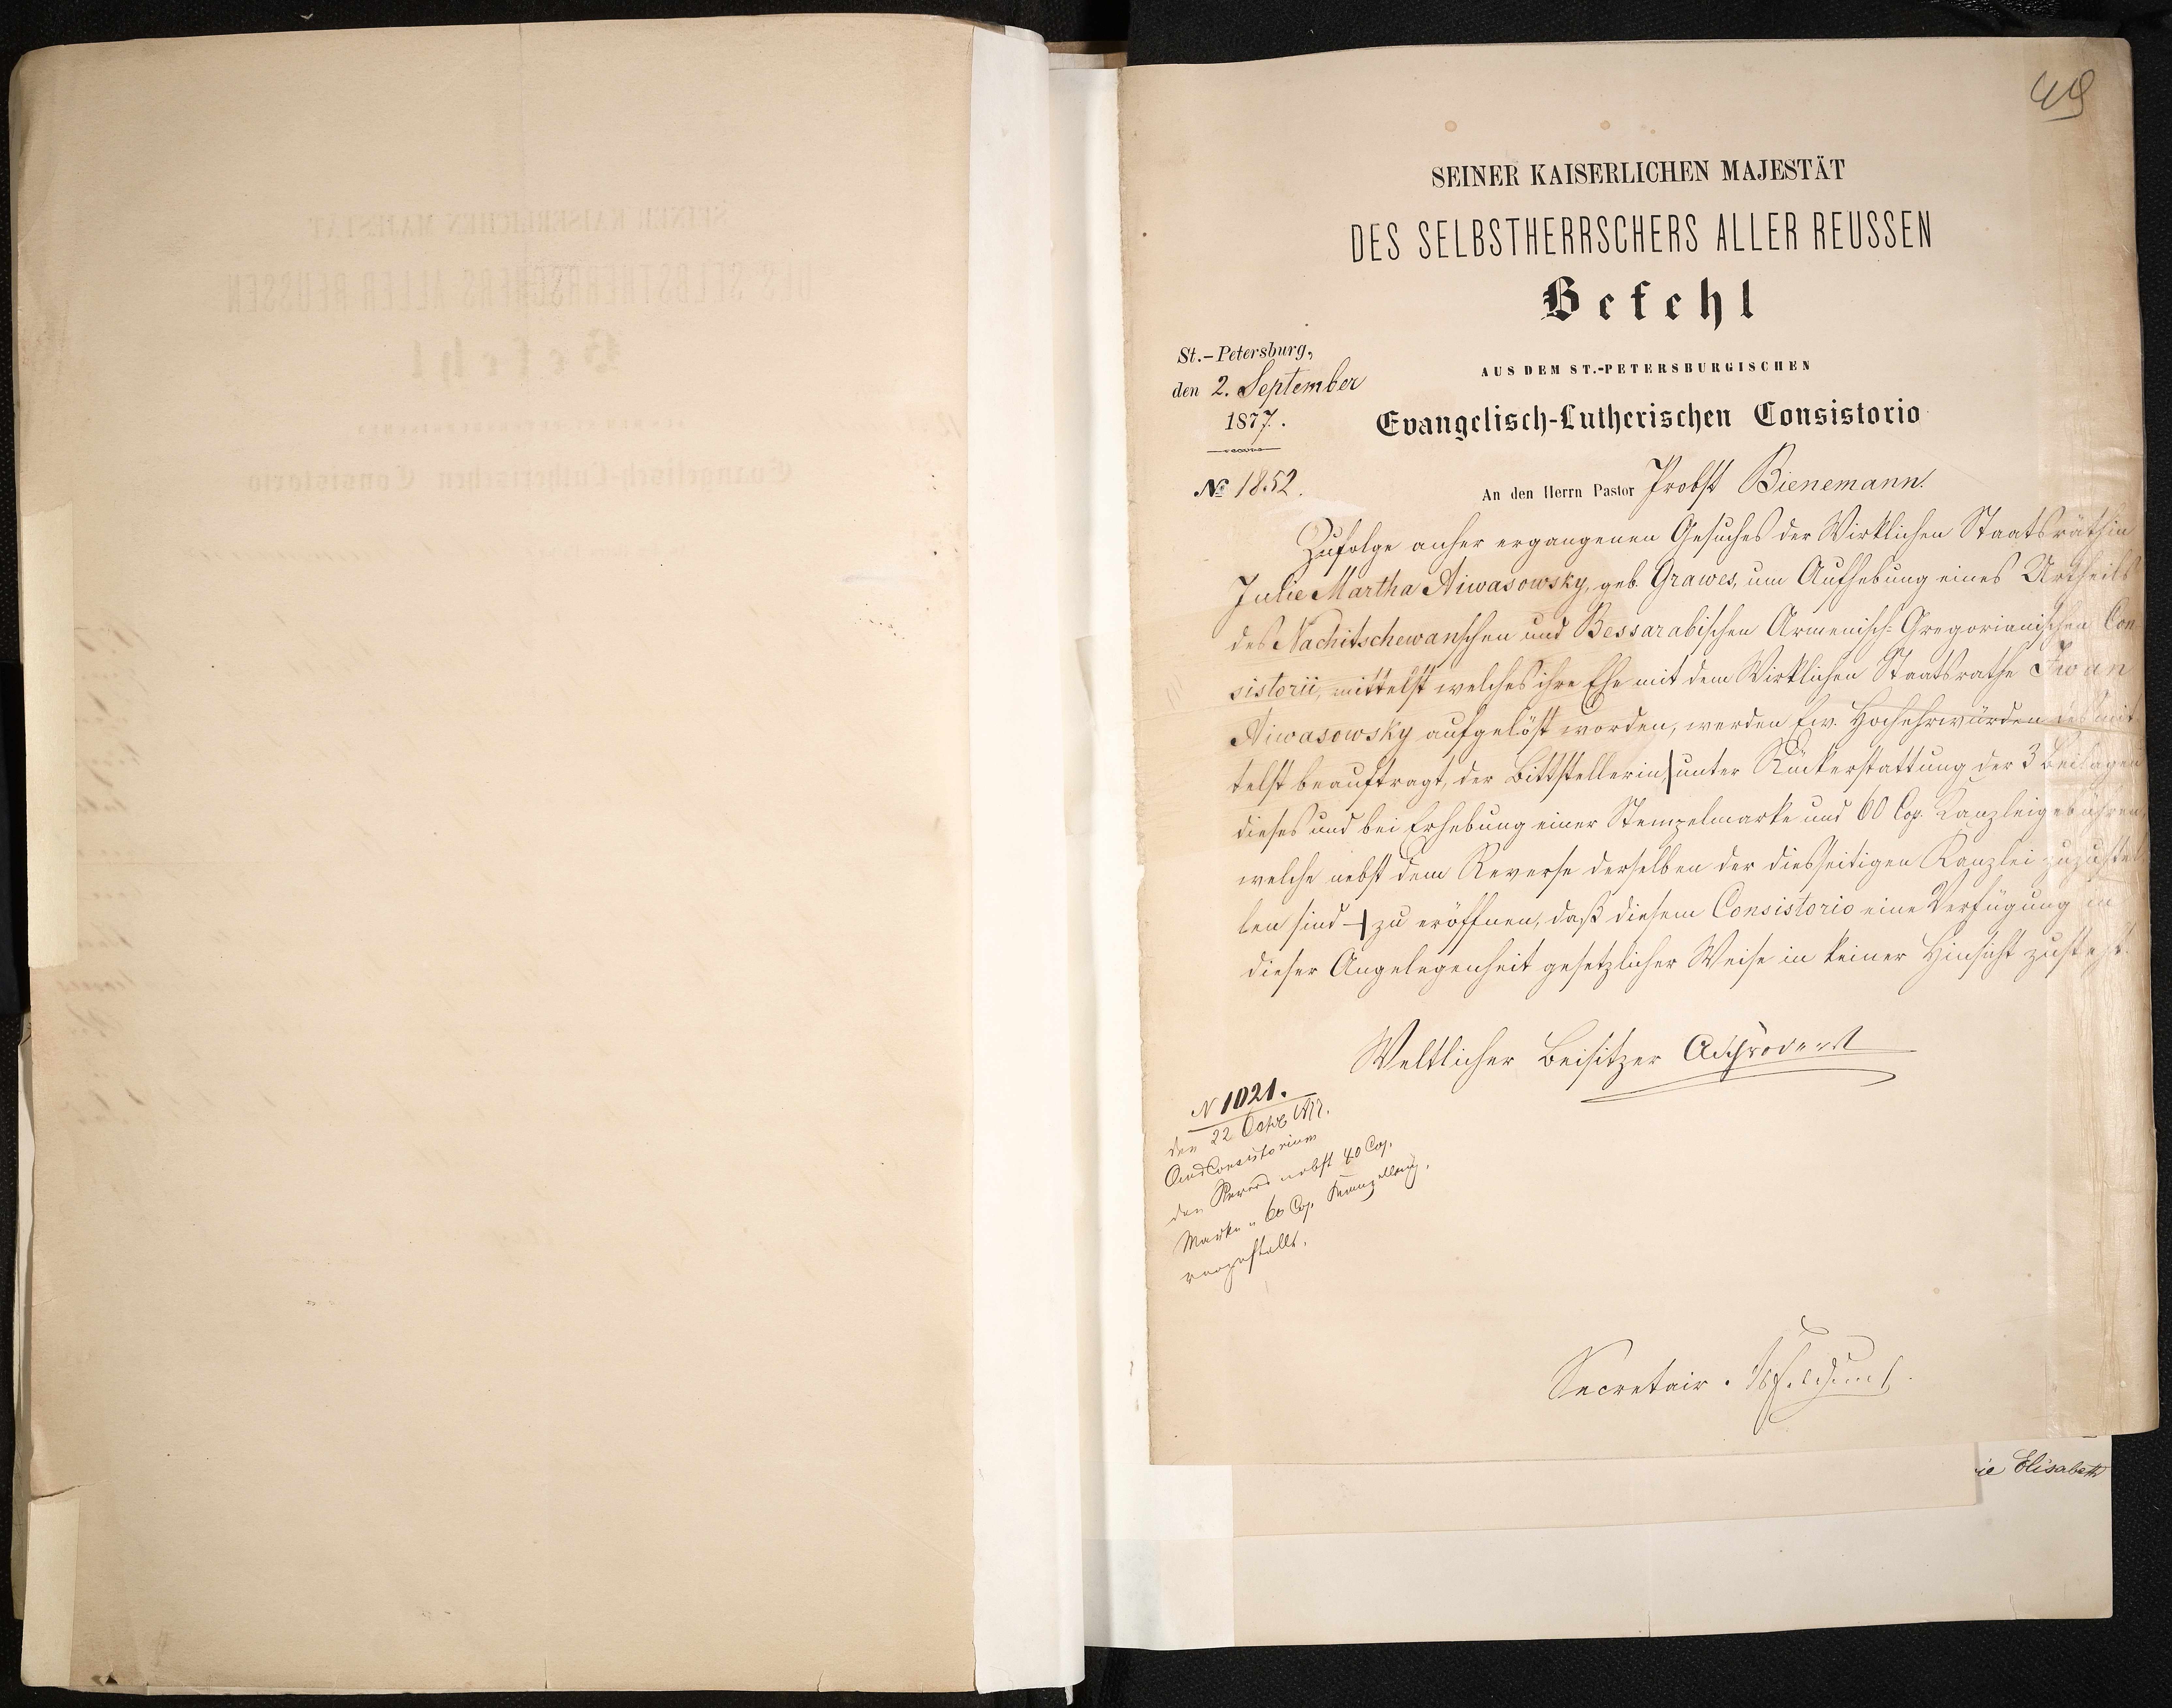 49
SEINER KAISERLICHEN MAJESTÄT
DES SELBSTHERRSCHERS ALLER REUSSEN
Befehl
AUS DEM ST.-PETERSBURGISCHEN
Evangelisch-Lutherischen Consistorio
St.-Petersburg,
den 2. September
1877.
№ 1852.
An den Herrn Pastor Probst Bienemann.
Zufolge anher ergangenen Gesuches der Wirklichen Staatsräthin
Julie Martha Aiwasowsky, geb. Grawes, um Aufhebung eines Urtheils
des Nachitschewanschen und Bessarabischen Armenisch-Gregorianischen Con-
sistorii, mittelst welches ihre Ehe mit dem Wirklichen Staatsrathe Iwan
Aiwasowsky aufgelöst worden, werden Ew. Hochehrwürden desmit-
telst beauftragt, der Bittstellerin, unter Rückerstattung der 3 Beilagen
dieses und bei Erhebung einer Stempelmarke und 60 Cop. Kanzleigebühren,
welche nebst dem Reverse derselben der diesseitigen Kanzlei zuzustel-
len sind – zu eröffnen, daß diesem Consistorio eine Verfügung in
dieser Angelegenheit gesetzlicher Weise in keiner Hinsicht zusteht.
Weltlicher Beisitzer
N 1021.
den 22 Octbr 1877.
Consistorium
den Revers nebst 40 Cop.
Marke u 60 Cop.
vorgestellt.
Secretair
ie Elisabeth